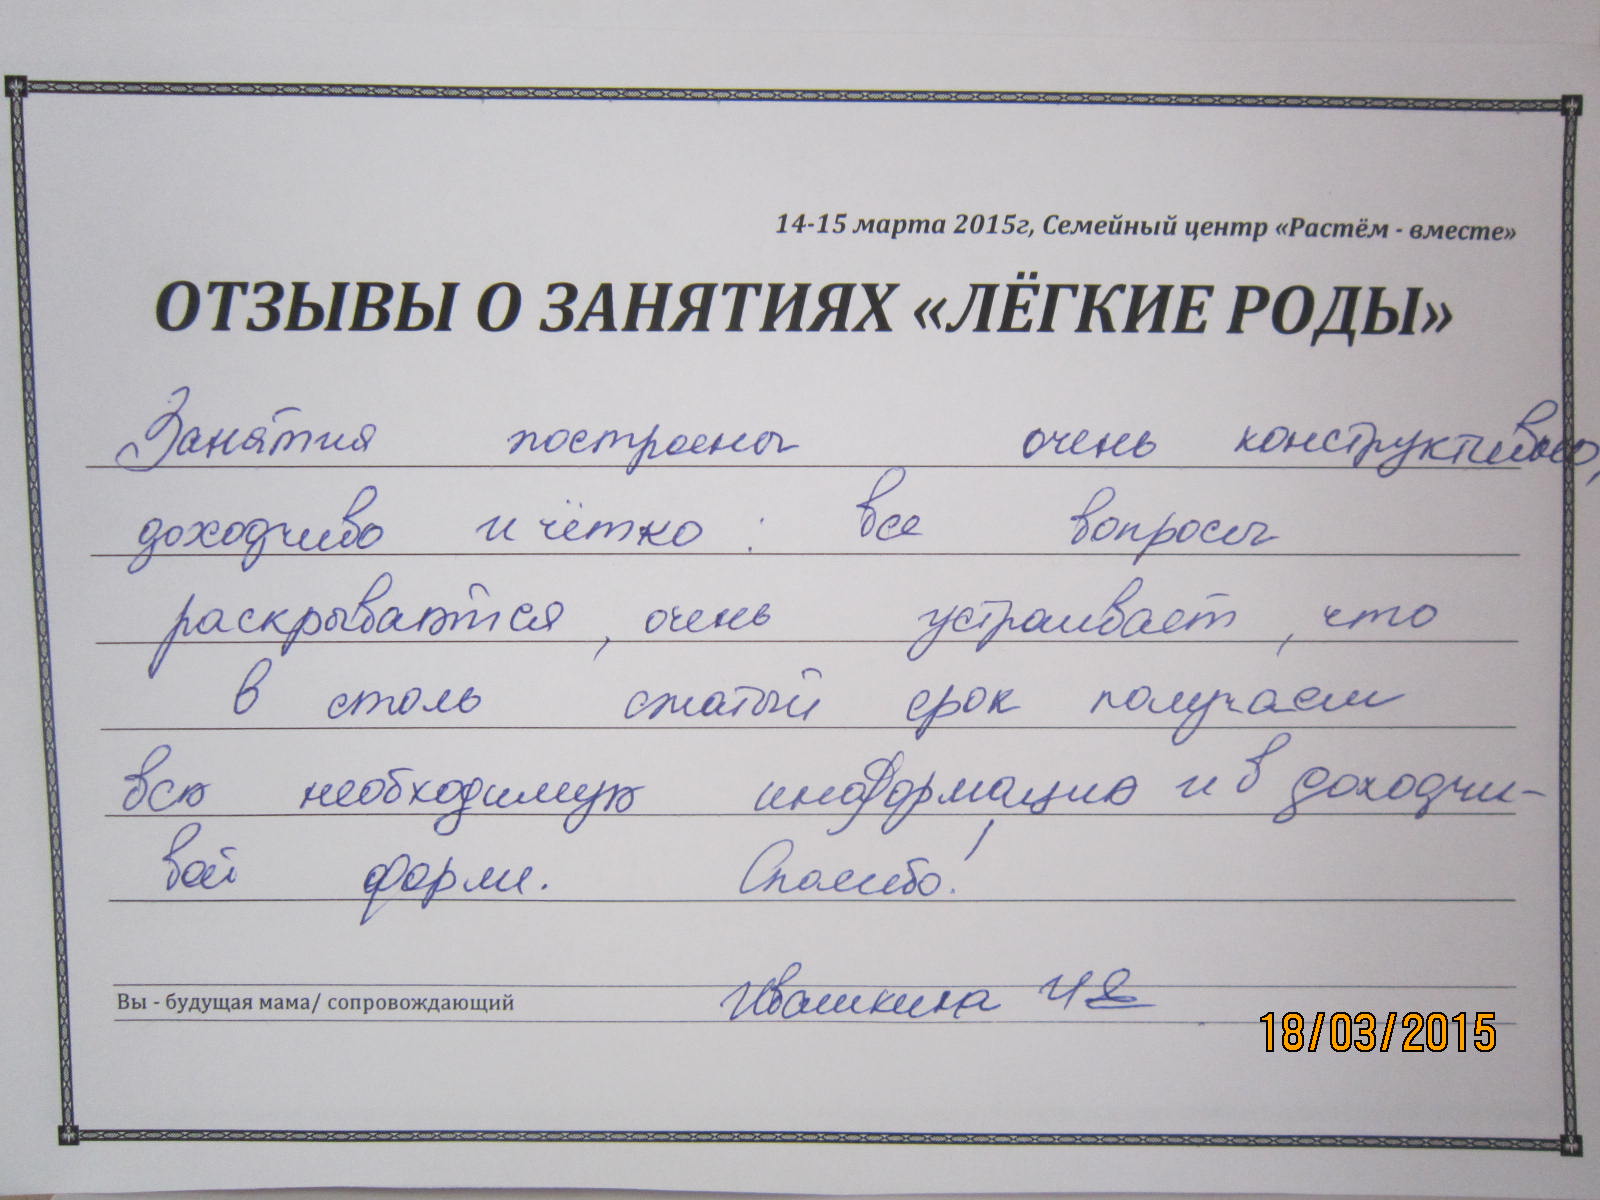 14-15 марта 2015г, Семейный центр «Растём - вместе»
ОТЗЫВЫ О ЗАНЯТИЯХ «ЛЁГКИЕ РОДЫ»
Занятия построены очень конструктивно,
доходчиво и чётко : все вопросы
раскрываются, очень устраивает, что
в столь сжатый срок получаем
всю необходимую информацию и в доходчи-
вой форме. Спасибо!
Вы - будущая мама/ сопровождающий Ивашкина И
18/03/2015